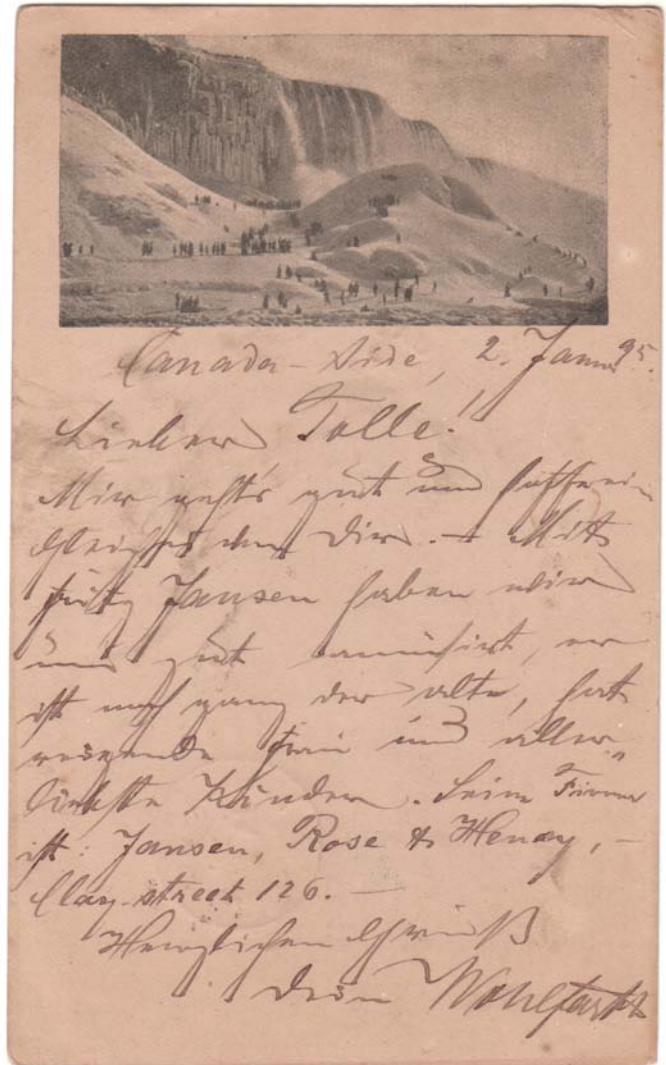 Canada-Side, 2. Jan. 95.
Lieber Tolle!
Mir geht's gut und hoffe ein
Gleiches von Dir. – Mit
Fritz Jansen haben wir
uns gut amüsirt, er
ist noch ganz der alte, hat
reizende Frau und aller-
liebste Kinder. Seine Firma
ist: Jansen, Rose & –
Clay-street 126. –
Herzlichen Gruß
Dein Wohlfarth